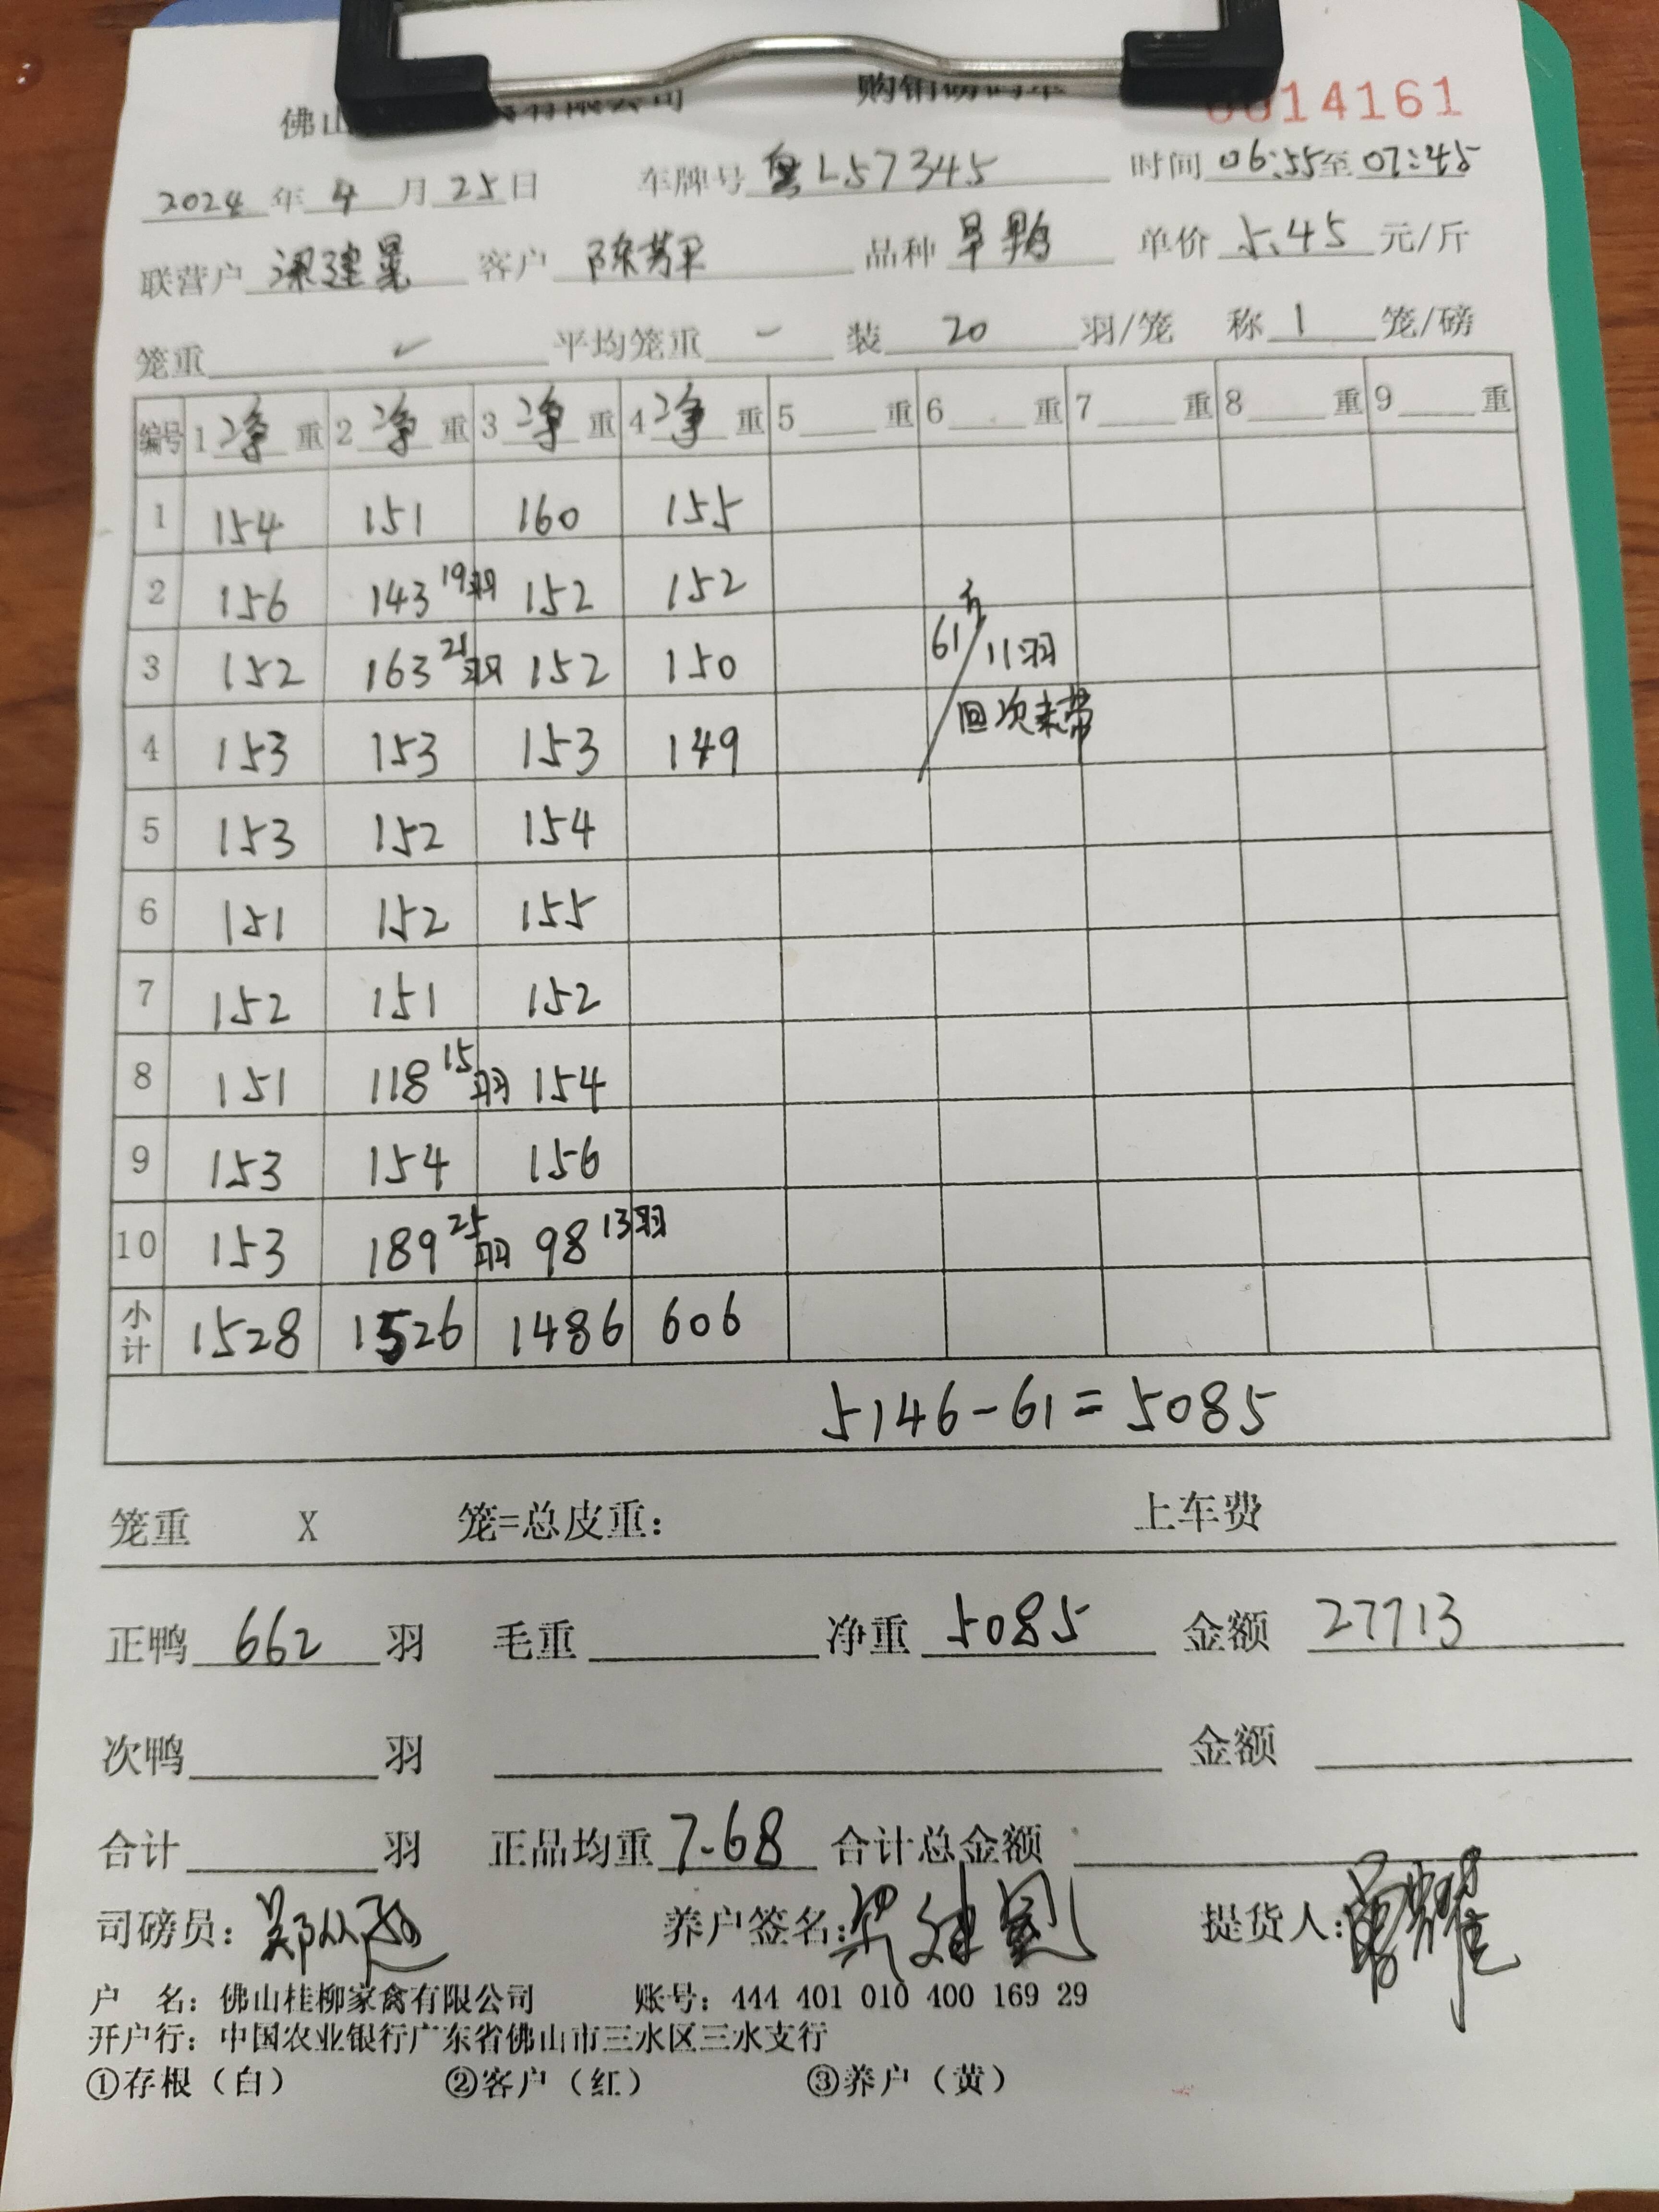 佛山 有限公司 购销磅码单 0014161
2024 年 4 月 25 日 车牌号 粤L57345 时间 06:55 至 07:45
联营户 梁建 客户 陈芬平 品种 旱鸭 单价 5.45 元/斤
笼重 ✓ 平均笼重 - 装 20 羽/笼 称 1 笼/磅
编号 1 净 重 2 净 重 3 净 重 4 净 重 5 重 6 重 7 重 8 重 9 重
1 154 151 160 155
2 156 143 19羽 152 152
3 152 163 21羽 152 150 61斤/11羽
4 153 153 153 149 回次未带
5 153 152 154
6 151 152 155
7 152 151 152
8 151 118 15羽 154
9 153 154 156
10 153 189 25羽 98 13羽
小计 1528 1526 1486 606
5146-61=5085
笼重 X 笼=总皮重: 上车费
正鸭 662 羽 毛重 净重 5085 金额 27713
次鸭 羽 金额
合计 羽 正品均重 7.68 合计总金额
司磅员: 养户签名: 梁建 提货人:
户 名: 佛山桂柳家禽有限公司 账号: 444 401 010 400 169 29
开户行: 中国农业银行广东省佛山市三水区三水支行
①存根（白） ②客户（红） ③养户（黄）